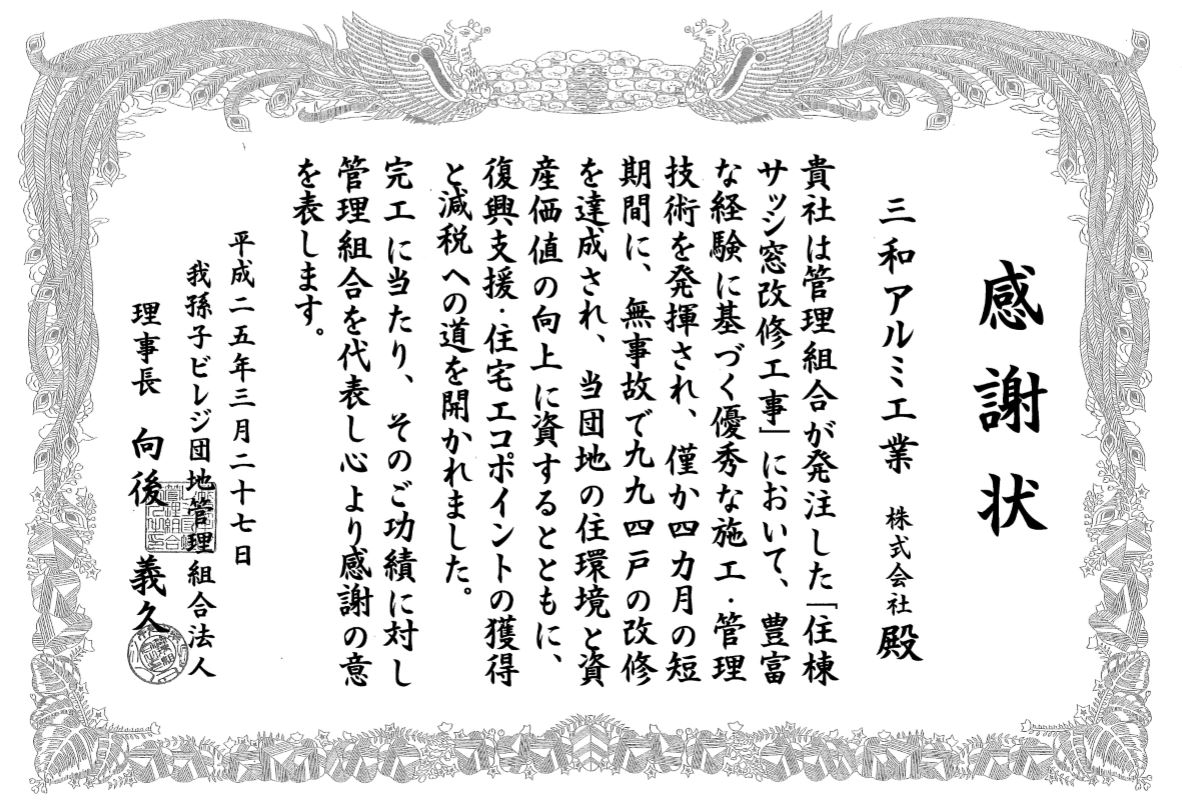 感謝状
三和アルミ工業 株式会社 殿
貴社は管理組合が発注した「住棟
サッシ窓改修工事」において、豊富
な経験に基づく優秀な施工・管理
技術を発揮され、僅か四カ月の短
期間に、無事故で九九四戸の改修
を達成され、当団地の住環境と資
産価値の向上に資するとともに、
復興支援・住宅エコポイントの獲得
と減税への道を開かれました。
完工に当たり、そのご功績に対し
管理組合を代表し心より感謝の意
を表します。
平成二五年三月二十七日
我孫子ビレジ団地管理組合法人
理事長 向後 義久